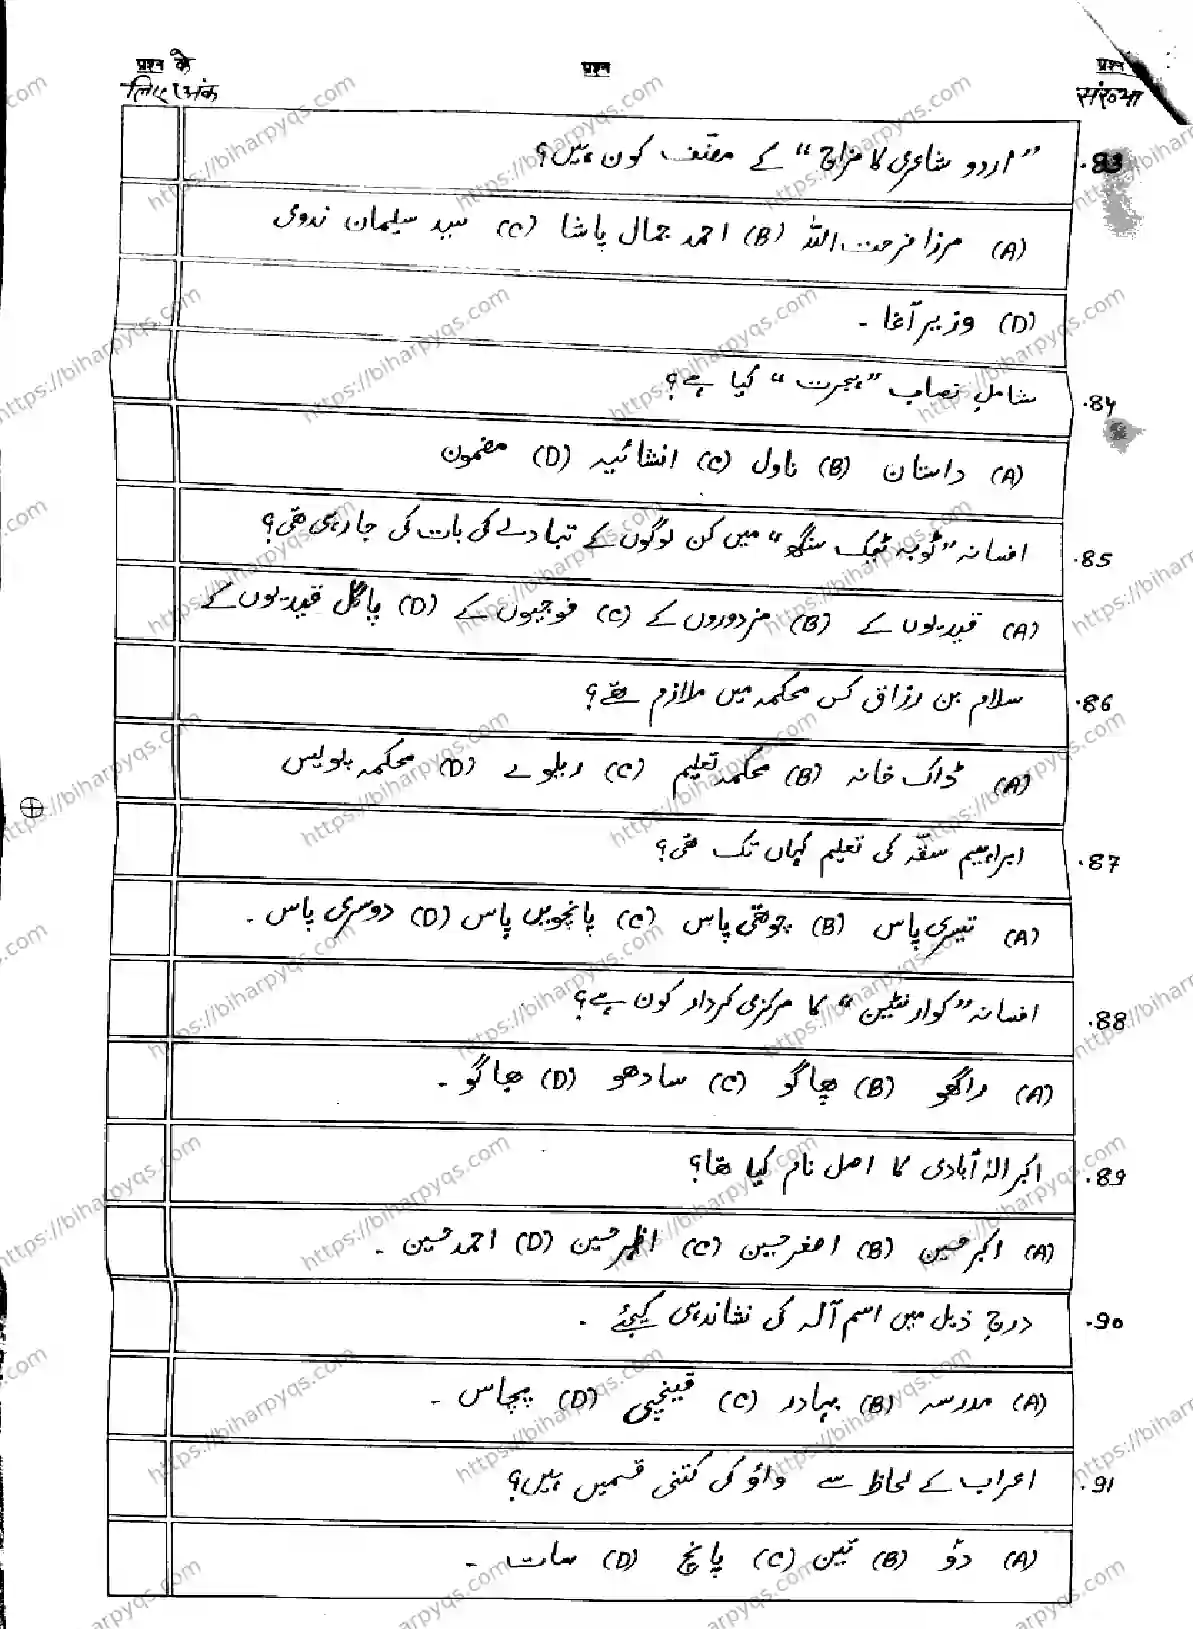 प्रश्न के प्रश्न प्रश्न
लिए अंक संख्या
83. "اردو شاعری کا مزاج" کے مصنف کون ہیں؟
(A) مرزا فرحت اللہ (B) احمد جمال پاشا (C) سید سلیمان ندوی
(D) وزیر آغا ۔
84. شامل نصاب "ہجرت" کیا ہے؟
(A) داستان (B) ناول (C) انشائیہ (D) مضمون
85. افسانہ "ٹوبہ ٹیک سنگھ" میں کن لوگوں کے تبادلے کی بات کی جا رہی تھی؟
(A) قیدیوں کے (B) مزدوروں کے (C) فوجیوں کے (D) پاگل قیدیوں کے
86. سلام بن رزاق کس محکمہ میں ملازم تھے؟
(A) ڈاک خانہ (B) محکمہ تعلیم (C) ریلوے (D) محکمہ پولیس
87. ابراہیم سقہ کی تعلیم کہاں تک تھی؟
(A) تیسری پاس (B) چوتھی پاس (C) پانچویں پاس (D) دوسری پاس ۔
88. افسانہ "کوارنٹین" کا مرکزی کردار کون ہے؟
(A) راگھو (B) بھاگو (C) سادھو (D) جاگو ۔
89. اکبر الہ آبادی کا اصل نام کیا تھا؟
(A) اکبر حسین (B) اصغر حسین (C) اظہر حسین (D) احمد حسین ۔
90. درج ذیل میں اسم آلہ کی نشاندہی کیجئے ۔
(A) مدرسہ (B) بہادر (C) قینچی (D) پچاس ۔
91. اعراب کے لحاظ سے واؤ کی کتنی قسمیں ہیں؟
(A) دو (B) تین (C) پانچ (D) سات ۔
https://biharpyqs.com